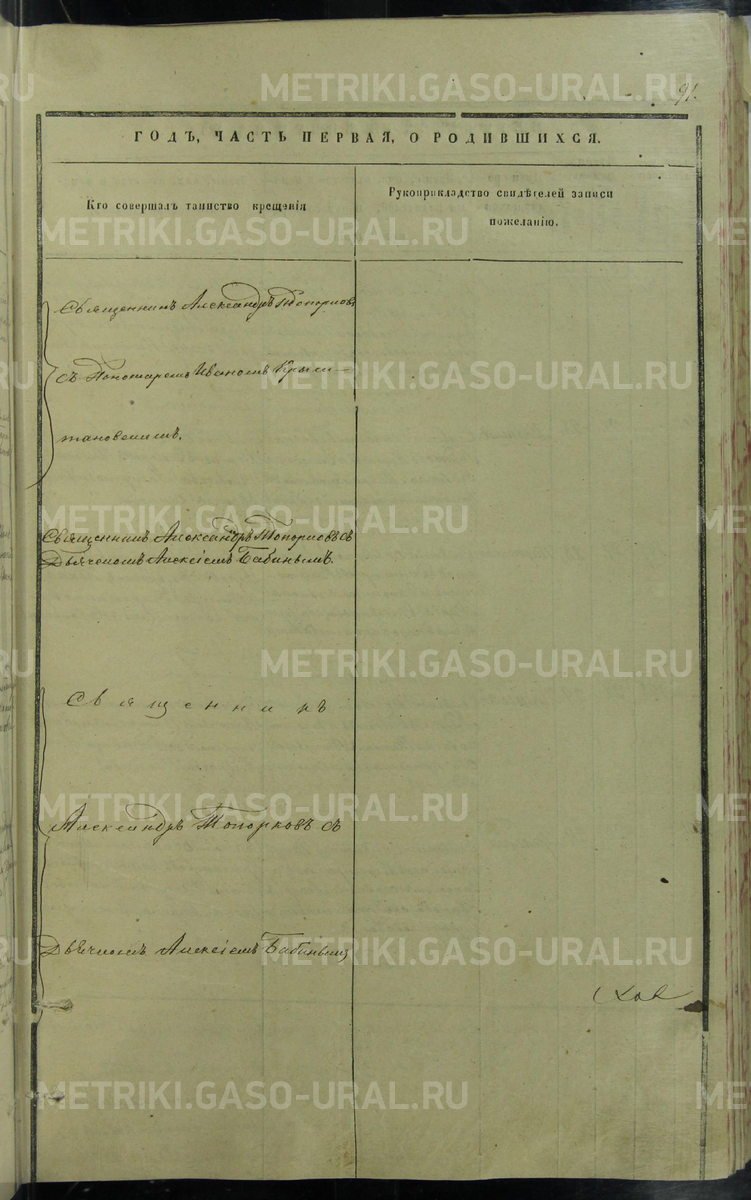 91.
ГОДЪ, ЧАСТЬ ПЕРВАЯ, О РОДИВШИХСЯ.
Кто совершалъ таинство крещенія
Рукоприкладство свидѣтелей записи
пожеланію.
Священникъ Александръ Топорковъ
съ Пономаремъ Иваномъ
Священникъ Александръ Топорковъ съ
Дьячкомъ Алексіемъ Бабинымъ.
Священникъ
Александръ Топорковъ съ
Дьячкомъ Алексіемъ Бабинымъ
METRIKI.GASO-URAL.RU